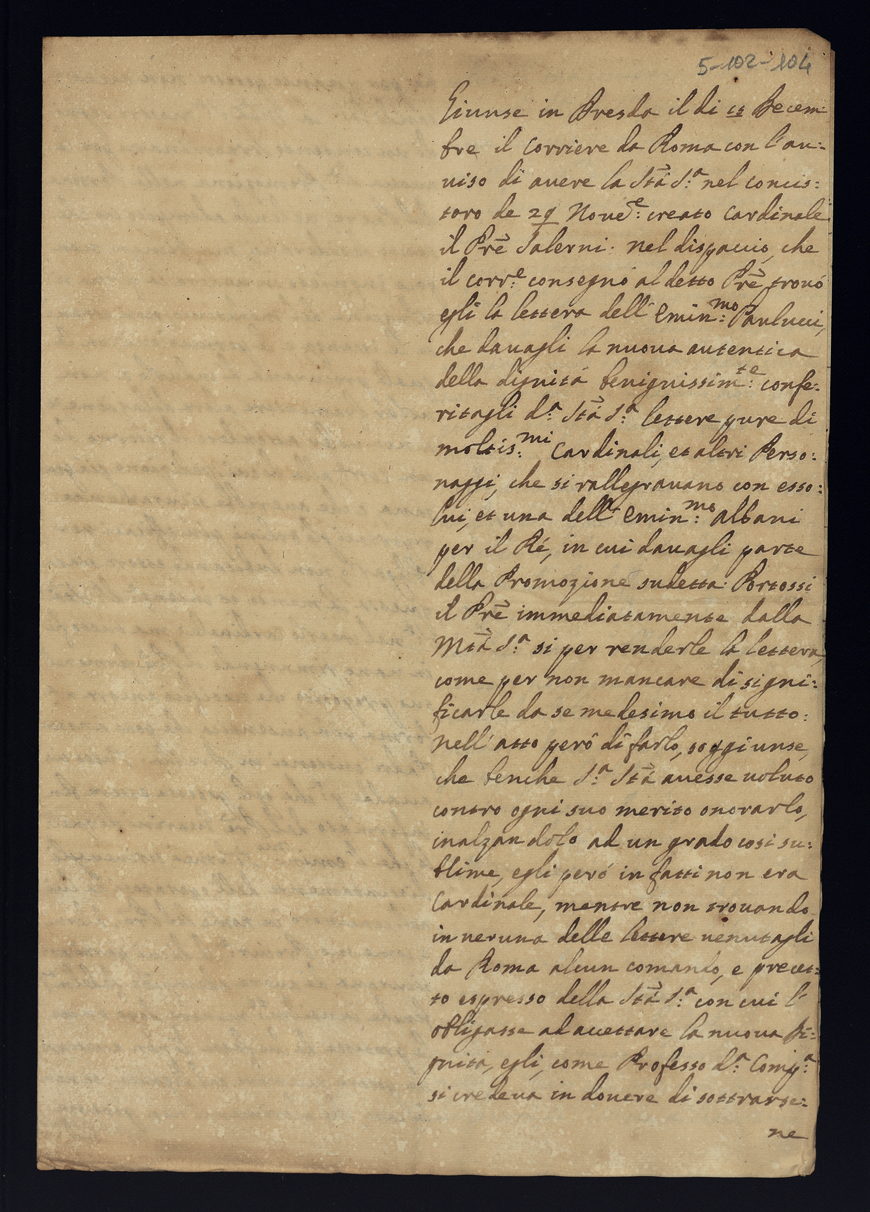 5-102-104
Giunse in Dresda il di 18 Decem-
bre il Corriere da Roma con l'au-
uiso di auere la Stà S.ª nel concis:
toro de 29 Noue͂:ᵉ creato Cardinale
il Prē Salerni: nel dispaccio, che
il corr.ᵉ consegnò al detto Prē, trouò
egli la lettera dell' Emin:ᵐᵒ Paulucci,
che dauagli la nuoua autentica
della dignità benignissim:ᵗᵉ confe-
ritagli d.ª Stà S.ª lettere pure di
moltis:ᵐⁱ Cardinali, et altri Perso:
naggi, che si rallegrauano con esso:
lui, et una dell' Emin:ᵐᵒ Albani
per il Ré, in cui dauagli parte
della Promozione sudetta: Portossi
il Prē immediatamente dalla
Mtà S.ª si per renderle la lettera,
come per non mancare di signi:
ficarle da se medesimo il tutto:
nell' atto però di farlo, soggiunse,
che benche S.ª Stà auesse uoluto
contro ogni suo merito onorarlo,
inalzandolo ad un grado cosi su:
blime, egli peró in fatti non era
Cardinale, mentre non trouando
in ueruna delle lettere uenutagli
da Roma alcun comando, e precet:
to espresso della Stà S.ª con cui l'
obligasse ad accettare la nuoua Di:
gnità, egli, come Professo d.ª Comp.ª
si credeua in douere di sottrarse:
ne